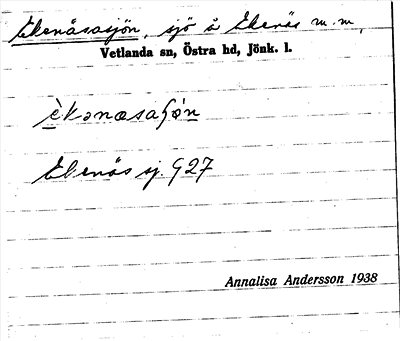 Ekenäsasjön, sjö å Ekenäs m.m.
Vetlanda sn, Östra hd, Jönk. l.
èkənæsaʃǿn
Ekenäs sj. G27
Annalisa Andersson 1938